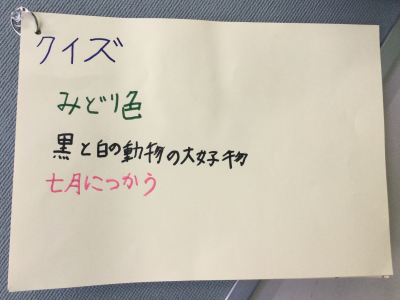 クイズ
みどり色
黒と白の動物の大好物
七月につかう